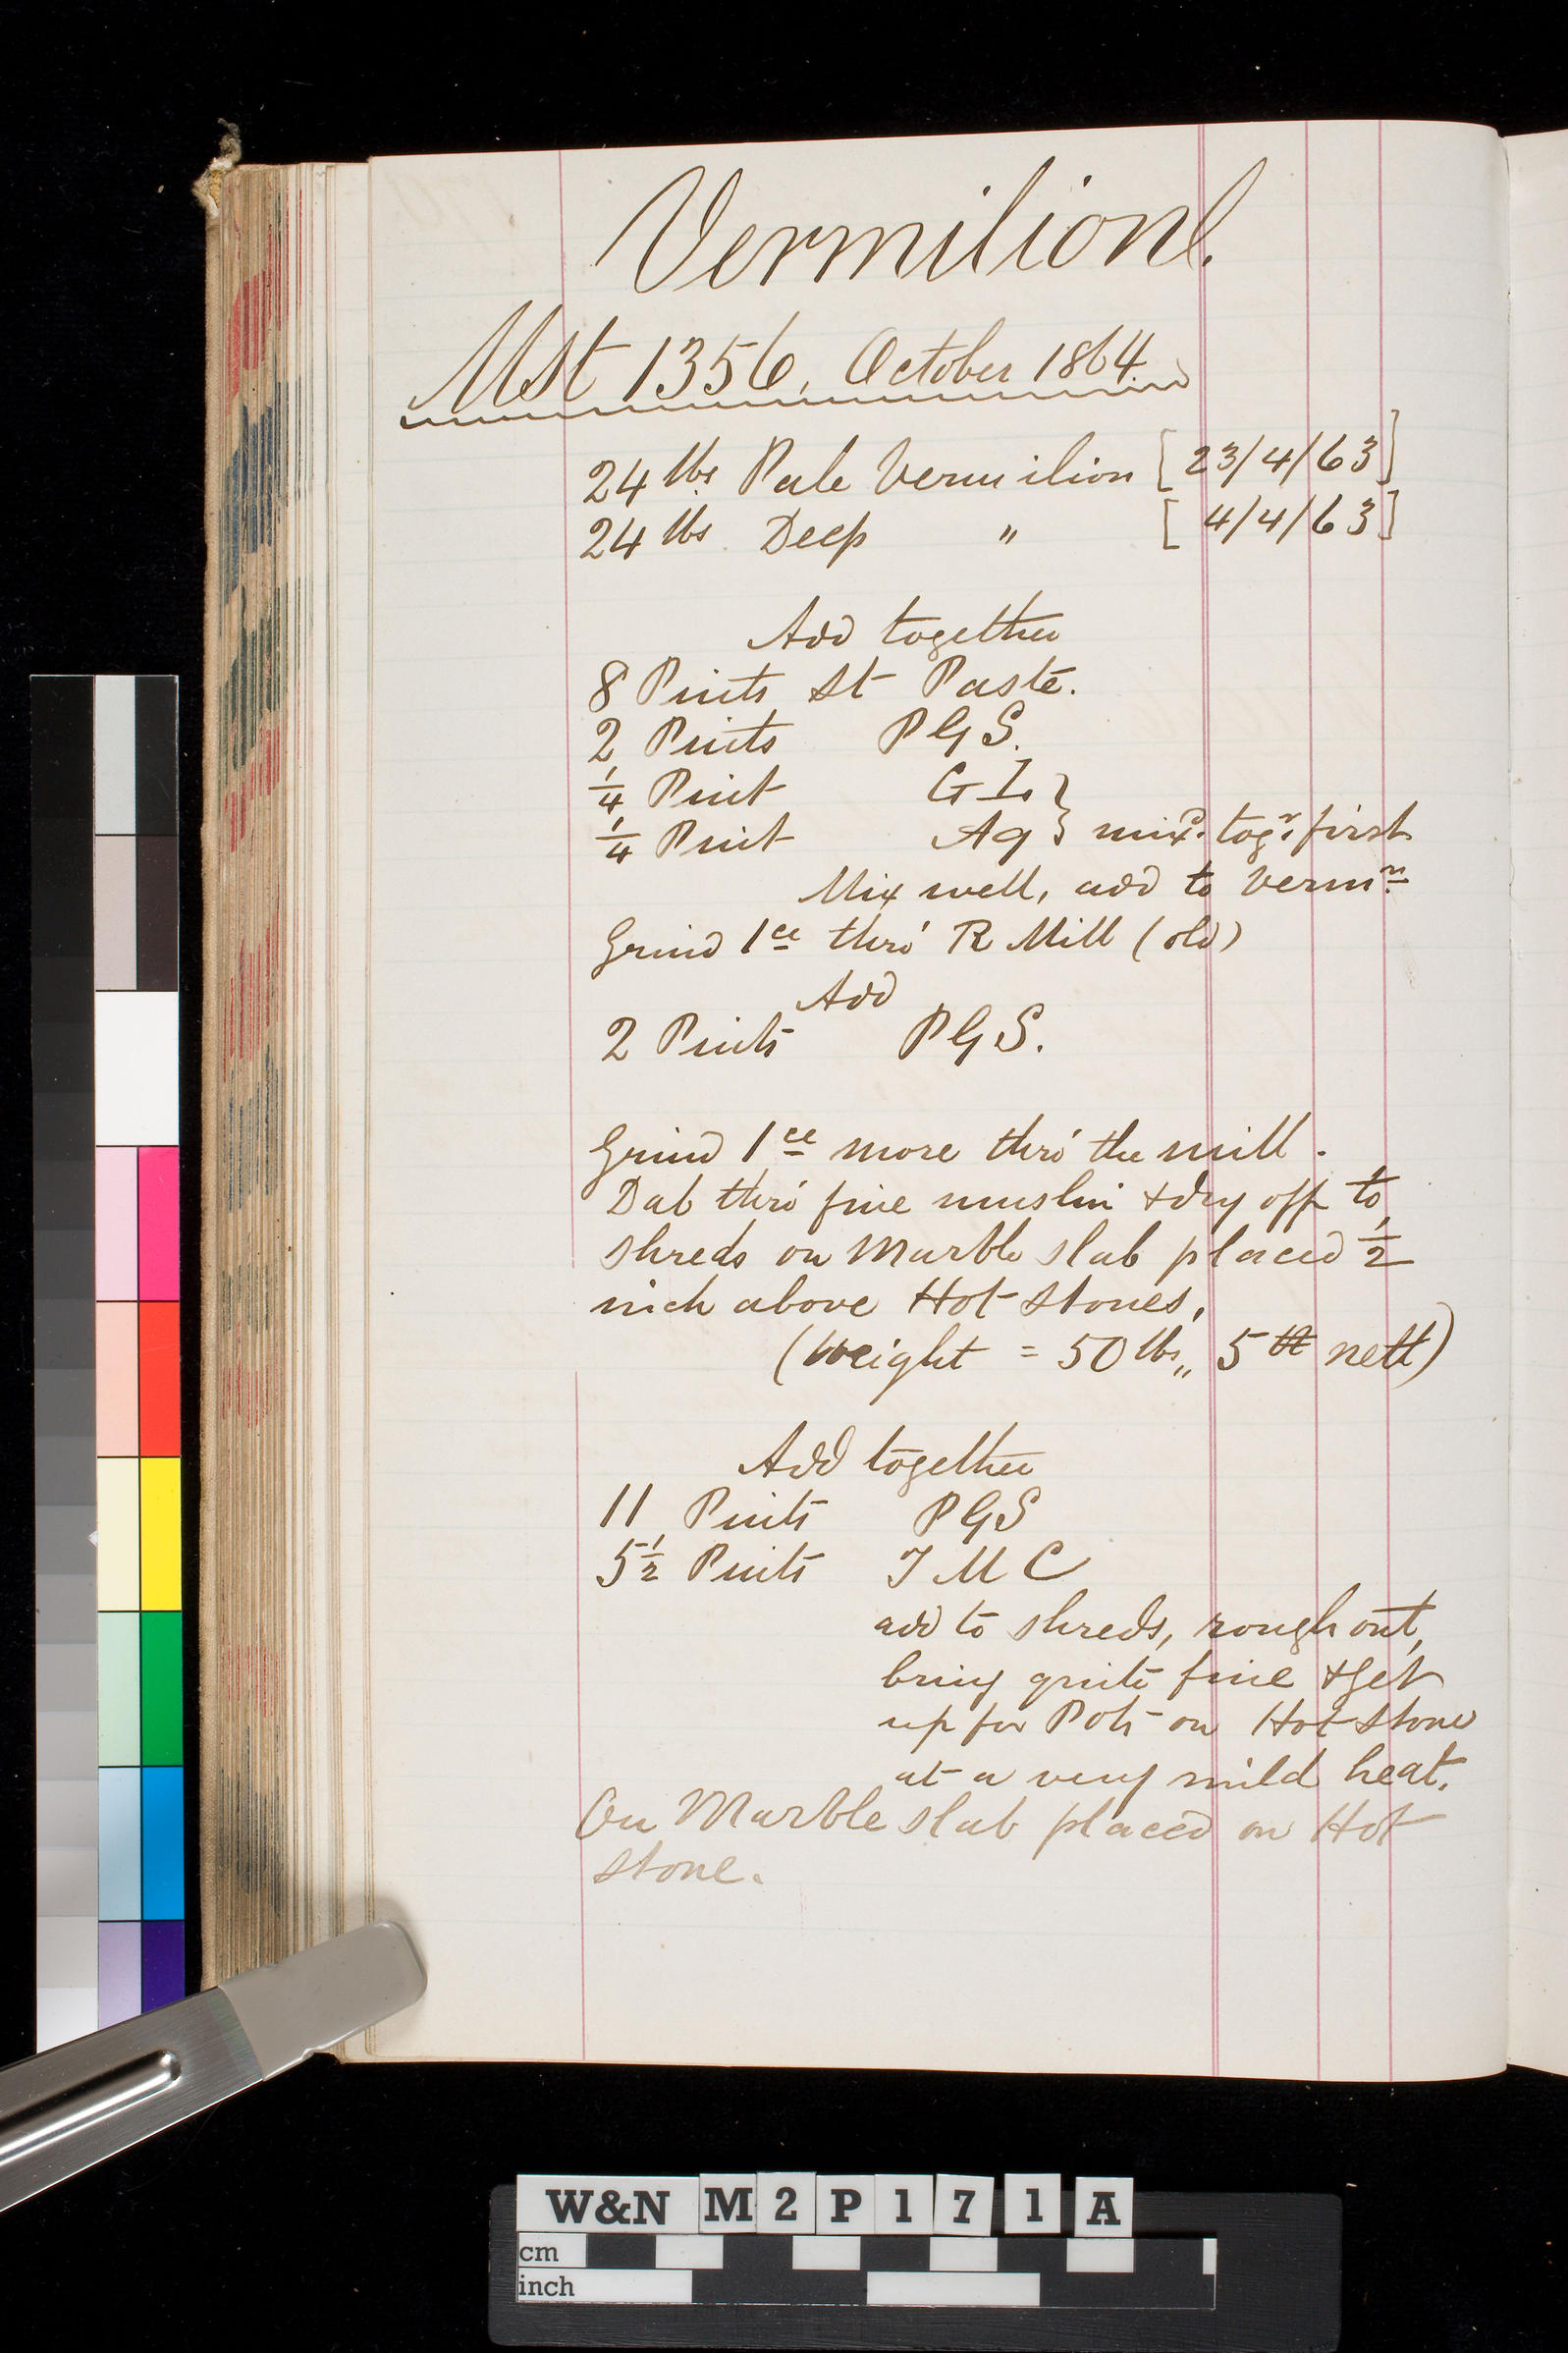 Vermilion.
Mst 1356, October 1864.
24 lbs Pale Vermilion [23/4/63]
24 lbs Deep " [4/4/63]
Add together
8 Pints St Paste.
2 Pints PGS.
1/4 Pint GI }
1/4 Pint Aq } mixd. togr. first
Mix well, add to Vermn
Grind 1ce thro' R Mill (old)
Add
2 Pints PGS.
Grind 1ce more thro' the mill.
Dab thro' fine muslin & dry off to
shreds on Marble slab placed 1/2
inch above Hot Stones,
(Weight = 50 lbs,, 5 nett)
Add together
11 Pints PGS
5 1/2 Pints TMC
add to shreds, rough out,
bring quite fine & get
up for Pots on Hot Stone
at a very mild heat.
On Marble slab placed on Hot
Stone.
W&N M2P171A
cm
inch